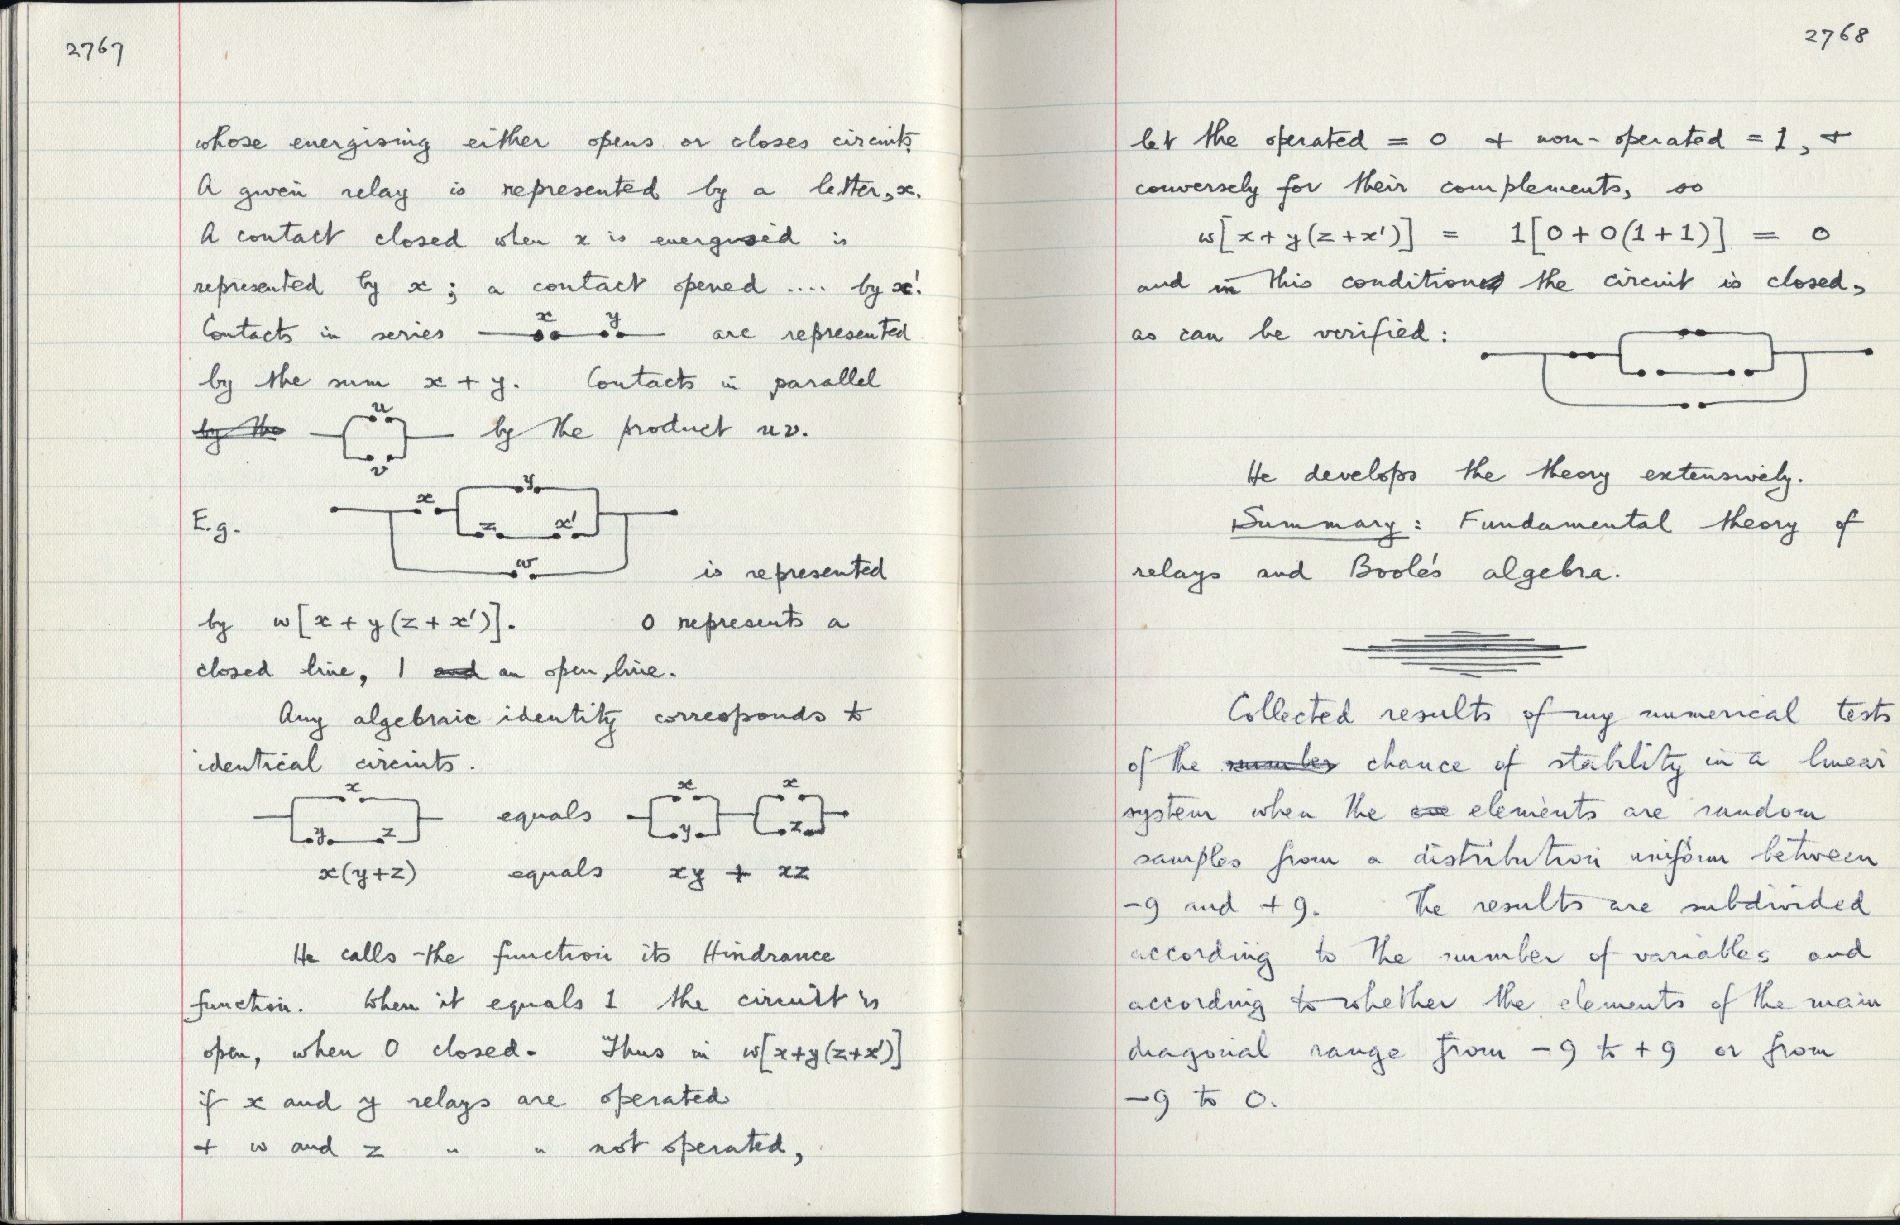 2767
whose energising either opens or closes circuits.
A given relay is represented by a letter, x.
A contact closed when x is energised is
represented by x ; a contact opened .... by x'.
Contacts in series x y are represented
by the sum x + y. Contacts in parallel
by the u v by the product uv.
E.g. x y z x' w
is represented
by w[x + y(z + x')]. 0 represents a
closed line, 1 and an open line.
Any algebraic identity corresponds to
identical circuits.
x y z equals x y x z
x(y+z) equals xy + xz
He calls the function its Hindrance
function. When it equals 1 the circuit is
open, when 0 closed. Thus in w[x+y(z+x')]
if x and y relays are operated
+ w and z " " not operated,
2768
let the operated = 0 + non-operated = 1, +
conversely for their complements, so
w[x + y(z + x')] = 1[0 + 0(1 + 1)] = 0
and in this condition the circuit is closed,
as can be verified :
He develops the theory extensively.
Summary : Fundamental theory of
relays and Boole's algebra.
Collected results of my numerical tests
of the number chance of stability in a linear
system when the elements are random
samples from a distribution uniform between
-9 and +9. The results are subdivided
according to the number of variables and
according to whether the elements of the main
diagonal range from -9 to +9 or from
-9 to 0.